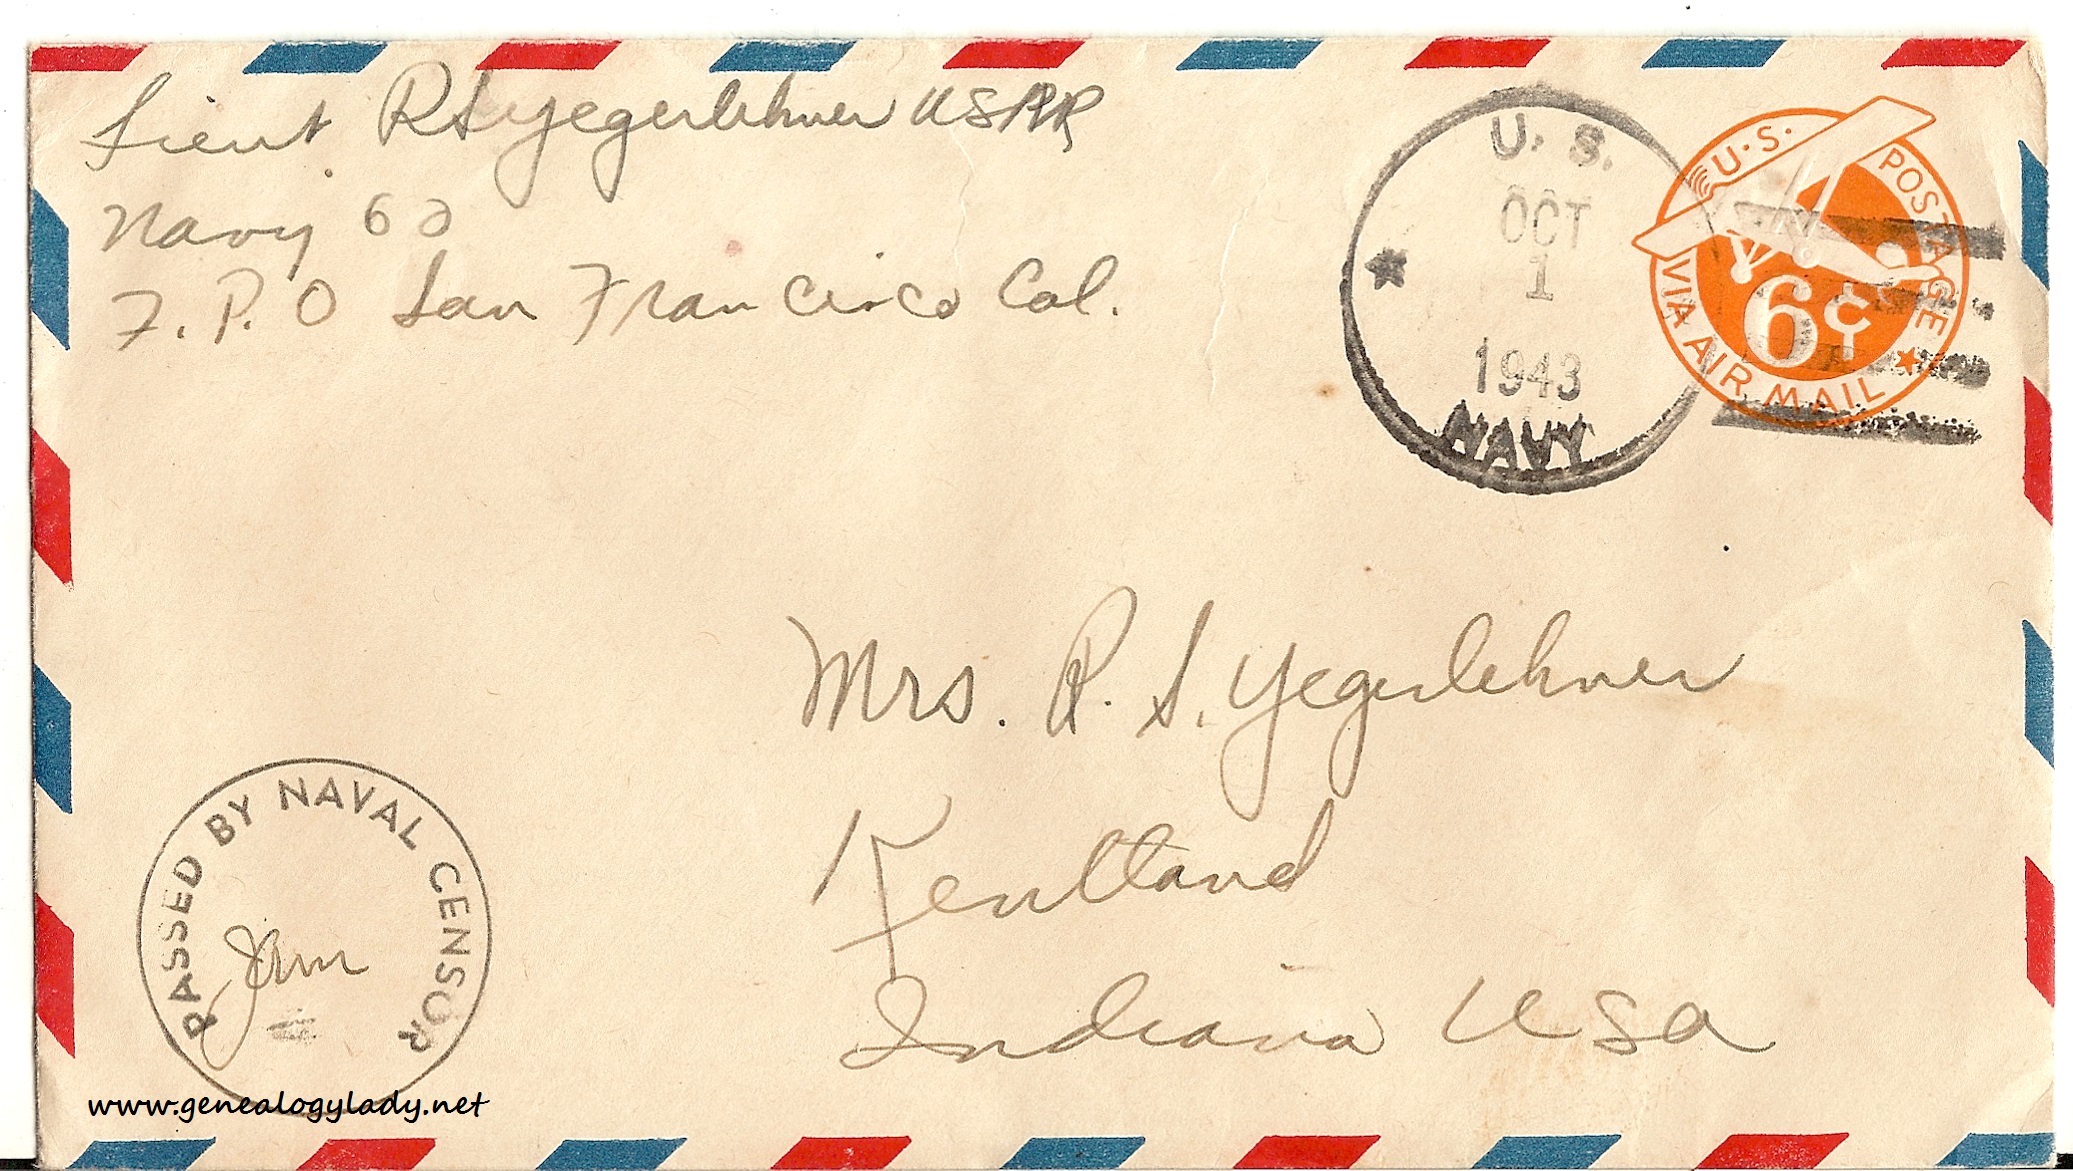 Lieut. RS Yegerlehner USNR
Navy 60
F.P.O San Francisco Cal.
U.S.
OCT
1
1943
NAVY
U.S. POSTAGE
6¢
VIA AIR MAIL
Mrs. R. S. Yegerlehner
Kentland
Indiana USA
PASSED BY NAVAL CENSOR
www.genealogylady.net